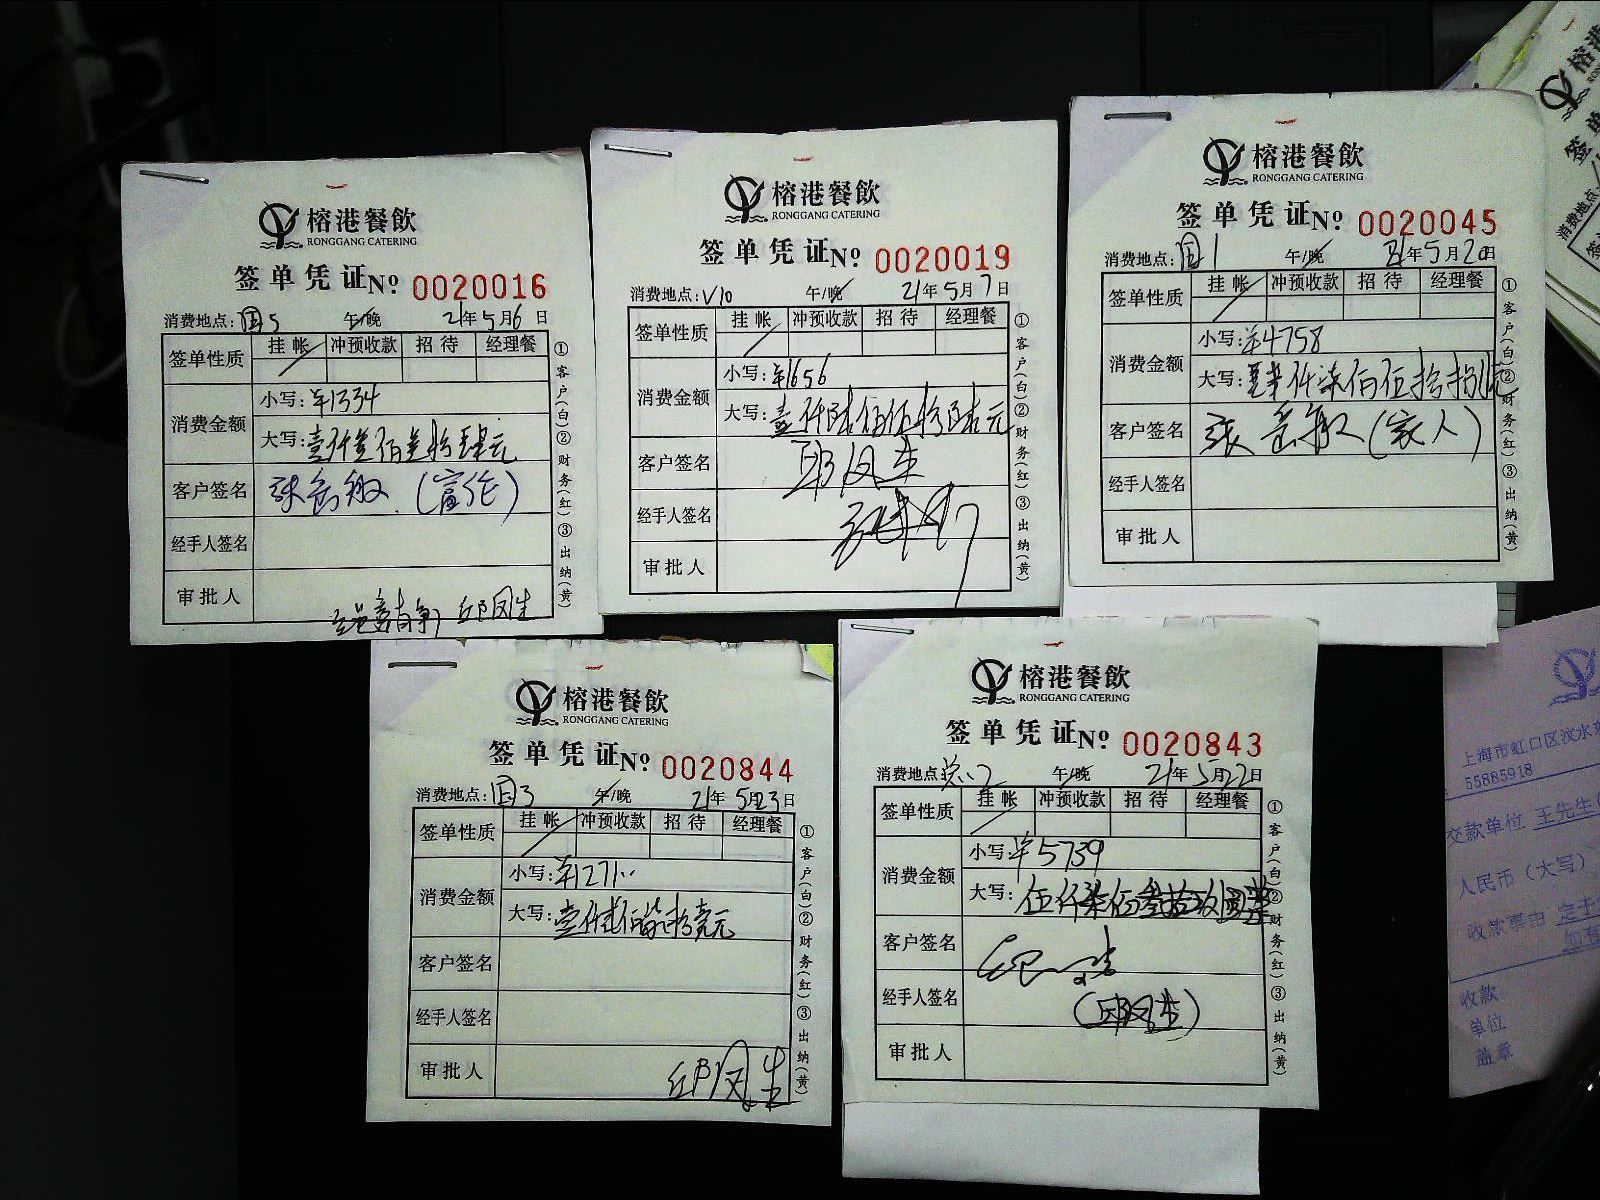 榕港餐飲
RONGGANG CATERING
签单凭证 No 0020016
消费地点: 国5 午/晚 21年5月6日
签单性质 挂帐 冲预收款 招待 经理餐
消费金额 小写: ¥1334
大写: 壹仟叁佰叁拾肆元
客户签名
经手人签名
审批人 邱凤生
①客户(白)②财务(红)③出纳(黄)
榕港餐飲
RONGGANG CATERING
签单凭证 No 0020019
消费地点: V10 午/晚 21年5月7日
签单性质 挂帐 冲预收款 招待 经理餐
消费金额 小写: ¥1656
大写: 壹仟陆佰伍拾陆元
客户签名 邱凤生
经手人签名
审批人
①客户(白)②财务(红)③出纳(黄)
榕港餐飲
RONGGANG CATERING
签单凭证 No 0020045
消费地点: 国1 午/晚 21年5月20日
签单性质 挂帐 冲预收款 招待 经理餐
消费金额 小写: ¥4758
大写: 仟柒佰伍拾捌
客户签名 张岳敏(家人)
经手人签名
审批人
①客户(白)②财务(红)③出纳(黄)
榕港餐飲
RONGGANG CATERING
签单凭证 No 0020844
消费地点: 国3 午/晚 21年5月23日
签单性质 挂帐 冲预收款 招待 经理餐
消费金额 小写: ¥1271
大写: 壹仟贰佰柒拾壹元
客户签名
经手人签名
审批人 邱凤生
①客户(白)②财务(红)③出纳(黄)
榕港餐飲
RONGGANG CATERING
签单凭证 No 0020843
消费地点: 2 午/晚 21年5月22日
签单性质 挂帐 冲预收款 招待 经理餐
消费金额 小写: ¥5739
大写: 伍仟柒佰叁拾玖圆
客户签名
经手人签名 (邱凤生)
审批人
①客户(白)②财务(红)③出纳(黄)
榕港
签单
消费地点:
上海市虹口区汶水东
55885918
交款单位 王先生
人民币(大写)
收款事由 定于
如有
收款
单位
盖章